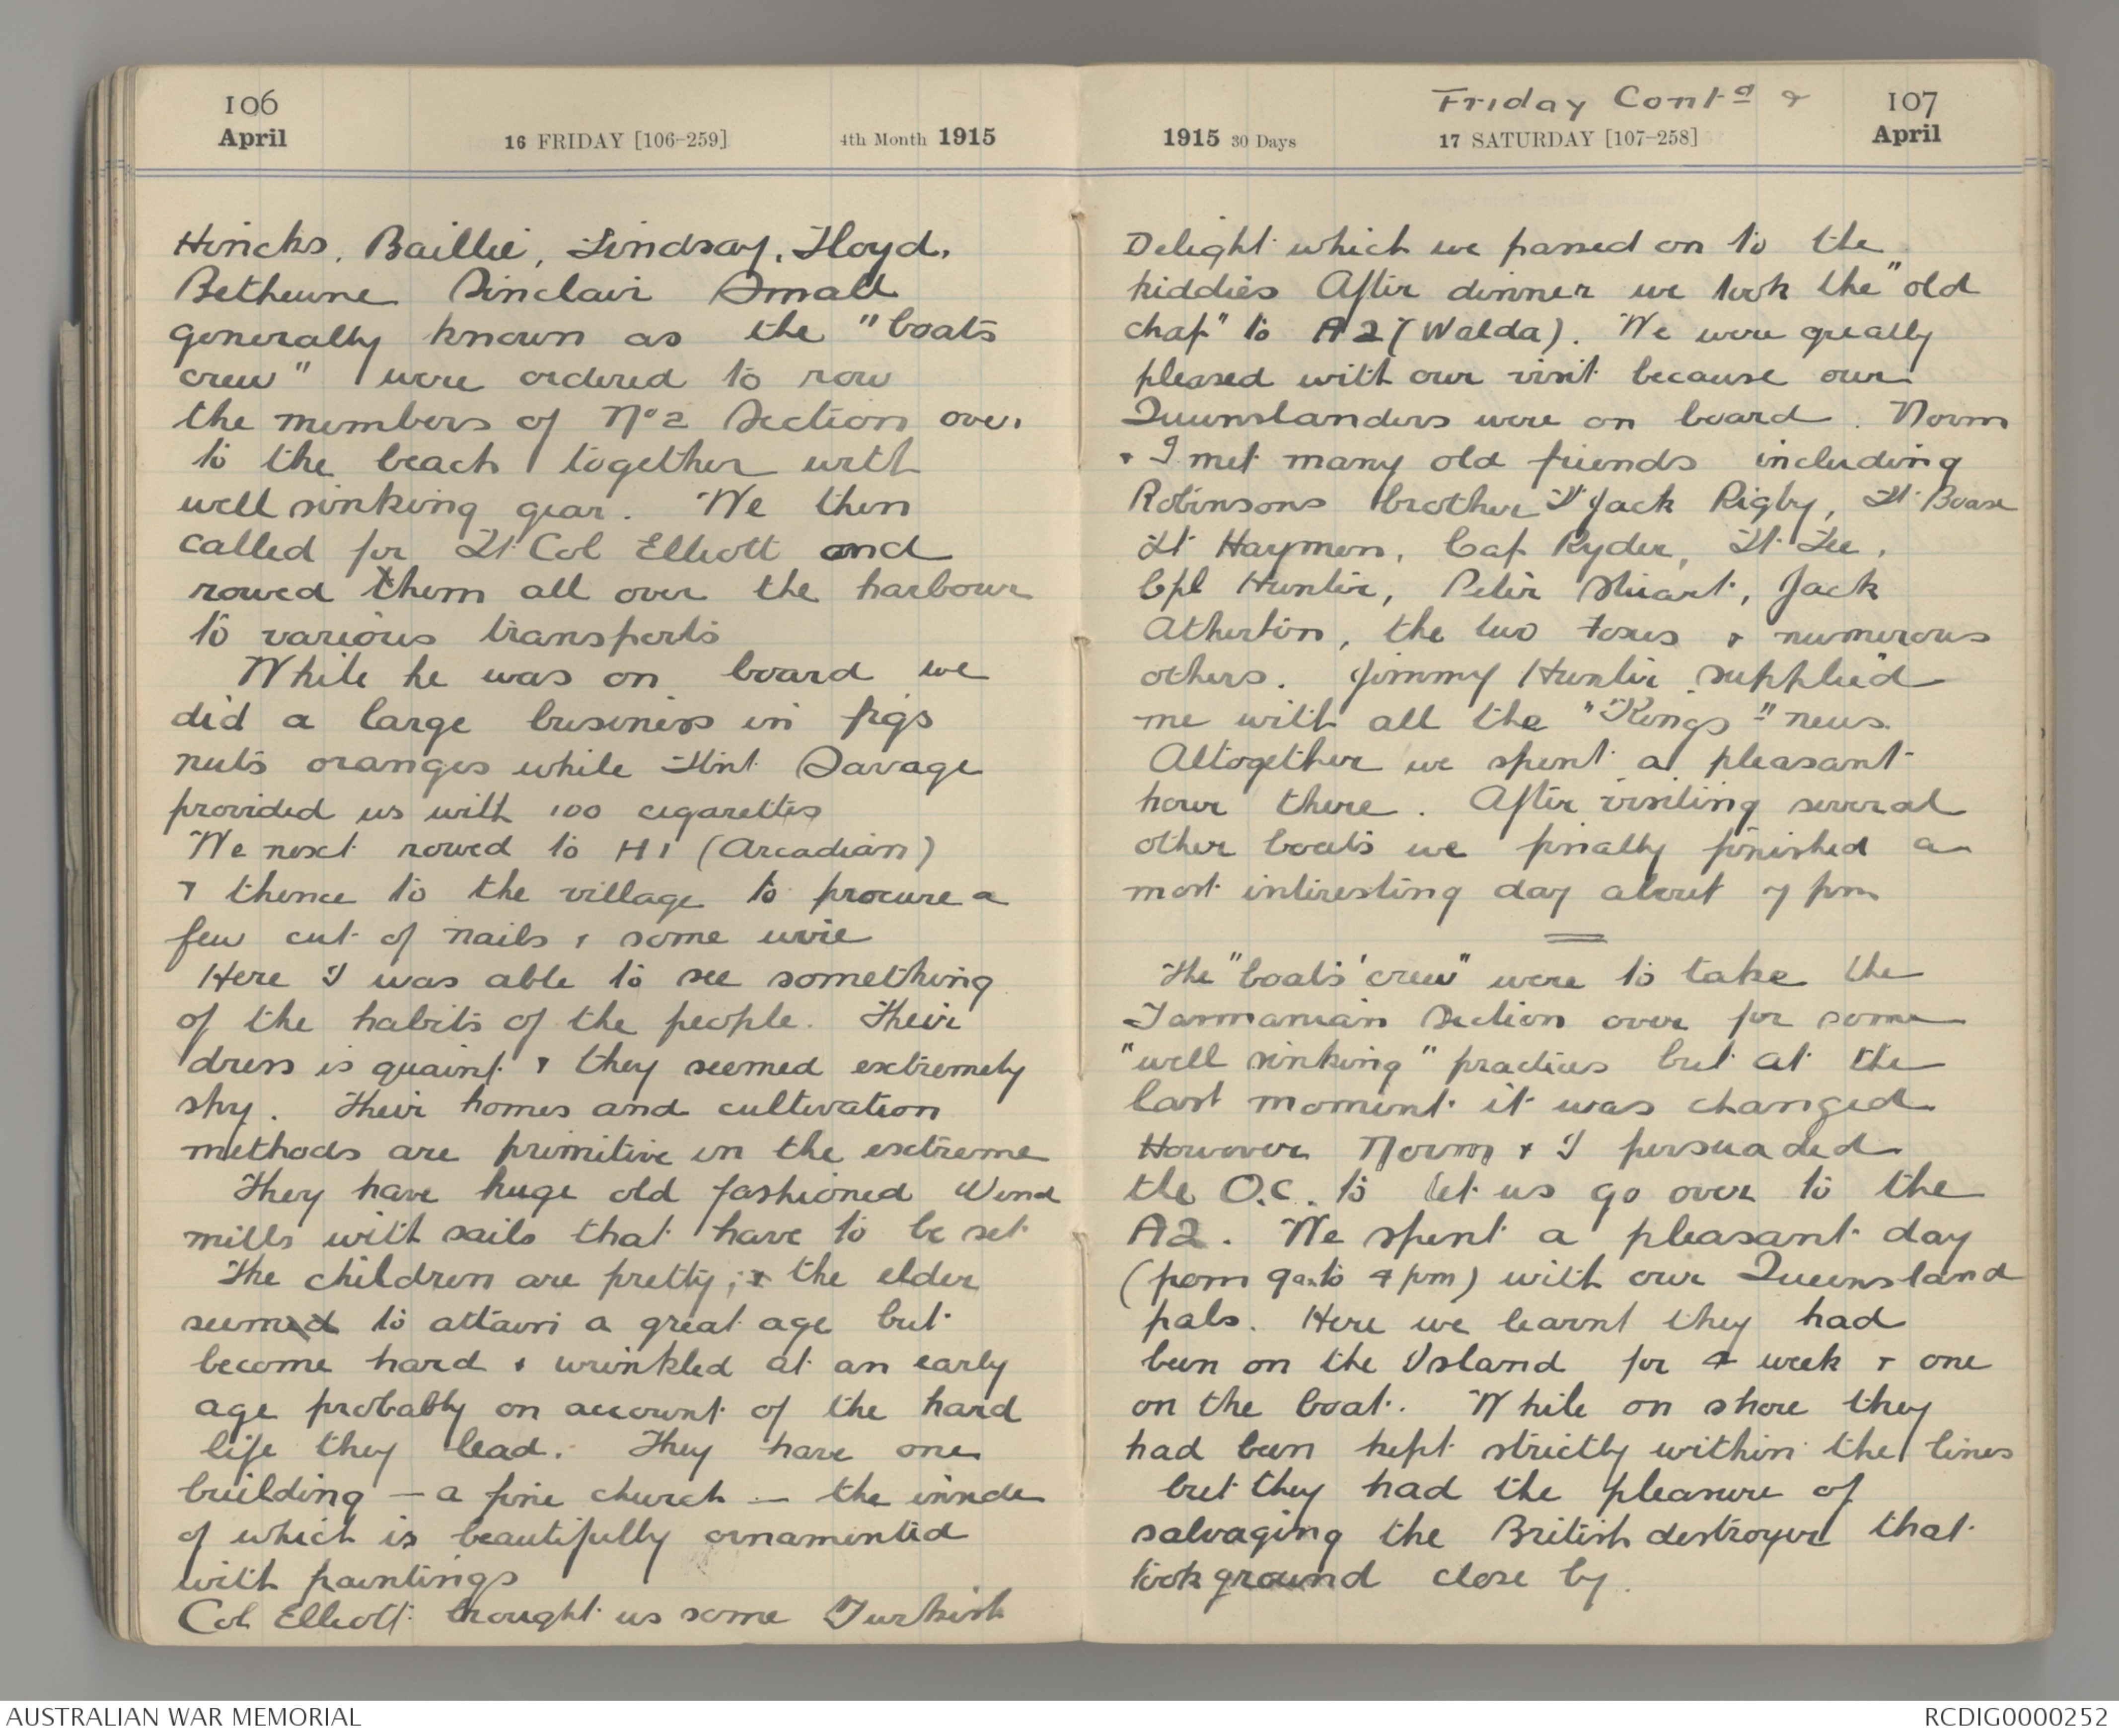 106
April
16 FRIDAY [106-259]
4th Month 1915
Hincks, Baillie, Lindsay, Lloyd,
Bethune Sinclair Small
generally known as the "boats
crew" were ordered to row
the members of No 2 Section over
to the beach together with
well sinking gear. We then
called for Lt Col Elliott and
rowed them all over the harbour
to various transports
While he was on board we
did a large business in figs
nuts oranges while Lint Savage
provided us with 100 cigarettes
We next rowed to H1 (Arcadian)
& thence to the village to procure a
few cut of nails & some wire
Here I was able to see something
of the habits of the people. Their
dress is quaint & they seemed extremely
shy. Their homes and cultivation
methods are primitive in the extreme
They have huge old fashioned Wind
mills with sails that have to be set
The children are pretty; & the elder
seemed to attain a great age but
become hard & wrinkled at an early
age probably on account of the hard
life they lead. They have one
building — a fine church — the inside
of which is beautifully ornamented
with paintings
Col Elliott brought us some Turkish
Friday Contd &
107
April
1915 30 Days
17 SATURDAY [107-258]
Delight which we passed on to the
kiddies After dinner we took the "old
chap" to A2 (Walda). We were greatly
pleased with our visit because our
Queenslanders were on board. Norm
& I met many old friends including
Robinsons brother Lt Jack Rigby, Lt Boase
Lt Haymen, Cap Ryder, Lt Lee,
Cpl Hunter, Peter Stuart, Jack
Atherton, the two & numerous
others. Jimmy Hunter supplied
me with all the "Kings" news.
Altogether we spent a pleasant
hour there. After visiting several
other boats we finally finished a
most interesting day about 7 pm
The "boats' crew" were to take the
Tasmanian Section over for some
"well sinking" practice but at the
last moment it was changed
However Norm & I persuaded
the O.C. to let us go over to the
A2. We spent a pleasant day
(from 9 a to 4 pm) with our Queensland
pals. Here we learnt they had
been on the Island for 4 week & one
on the boat. While on shore they
had been kept strictly within the lines
but they had the pleasure of
salvaging the British destroyer that
took ground close by.
AUSTRALIAN WAR MEMORIAL
RCDIG0000252